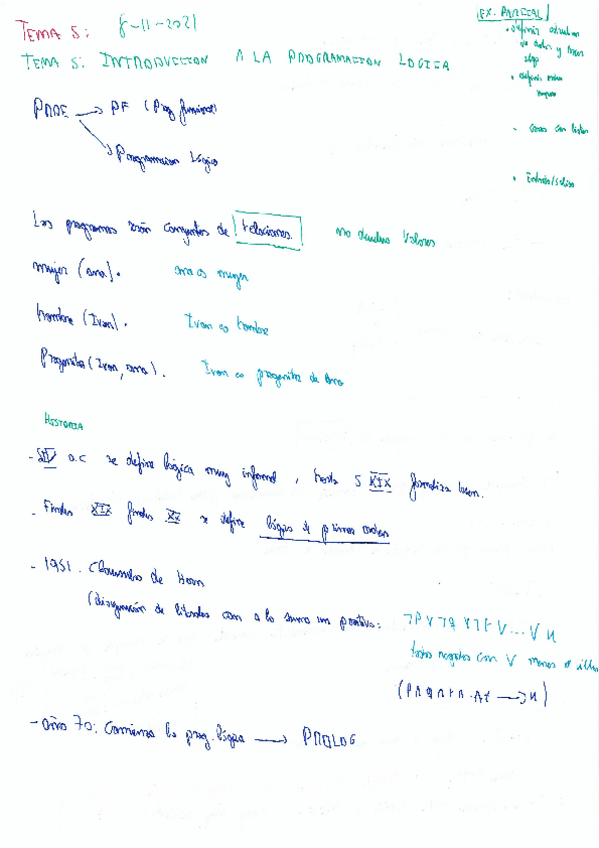 TEMA 5: 8-11-2021
EX. PARCIAL
TEMA 5: INTRODUCCION A LA PROGRAMACION LOGICA
PADE → PF (Prog funcional)
Programacion Lógica
Entrada/Salida
Los programas serán conjuntos de relaciones. no devuelven valores
mujer (ana). ana es mujer
hombre (Ivan). Ivan es hombre
Progenitor (Ivan, ana). Ivan es progenitor de Ana
HISTORIA
- SIV a.c se define lógica muy informal, hasta S XIX formaliza bien.
- Finales XIX finales XX se define lógica de primer orden
- 1951. Clausulas de Horn
(disyunción de literales con a lo sumo un positivo: ¬P ∨ ¬q ∨ ¬t ∨ ... ∨ u
todos negados con V menos el
- año 70: Comienza la prog. lógica → PROLOG